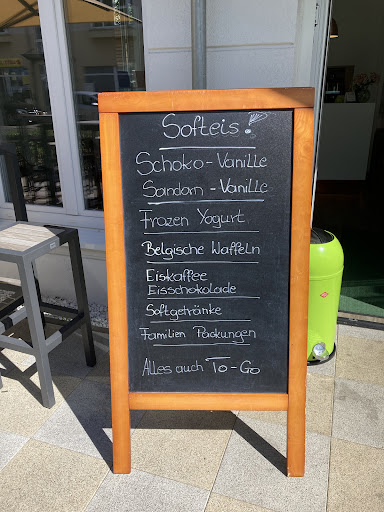 Softeis!
Schoko-Vanille
Sandorn-Vanille
Frozen Yogurt
Belgische Waffeln
Eiskaffee
Eisschokolade
Softgetränke
Familien Packungen
Alles auch To-Go